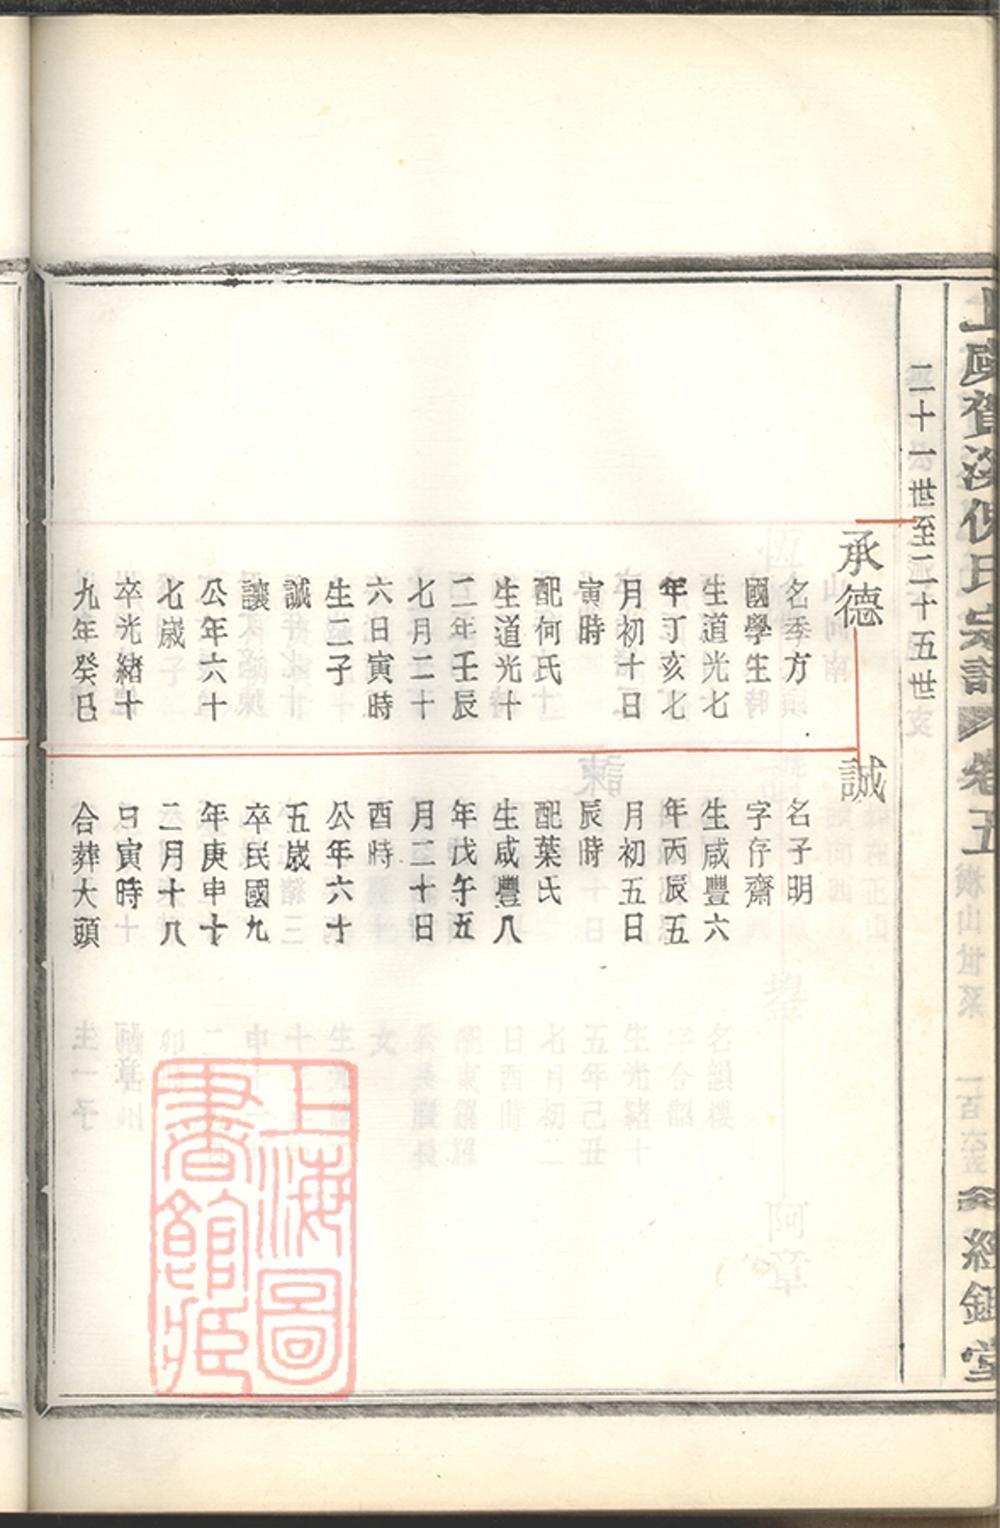 上虞賀溪倪氏宗譜 卷五 橫山世系 經鉏堂
二十一世至二十五世
承德
名季方
國學生
生道光七
年丁亥七
月初十日
寅時
配何氏
生道光十
二年壬辰
七月二十
六日寅時
生二子
誠
讓
公年六十
七歲
卒光緒十
九年癸巳
誠
名子明
字存齋
生咸豐六
年丙辰五
月初五日
辰時
配葉氏
生咸豐八
年戊午五
月二十日
酉時
公年六十
五歲
卒民國九
年庚申十
二月十八
日寅時
合葬大頭
上海圖
書館藏